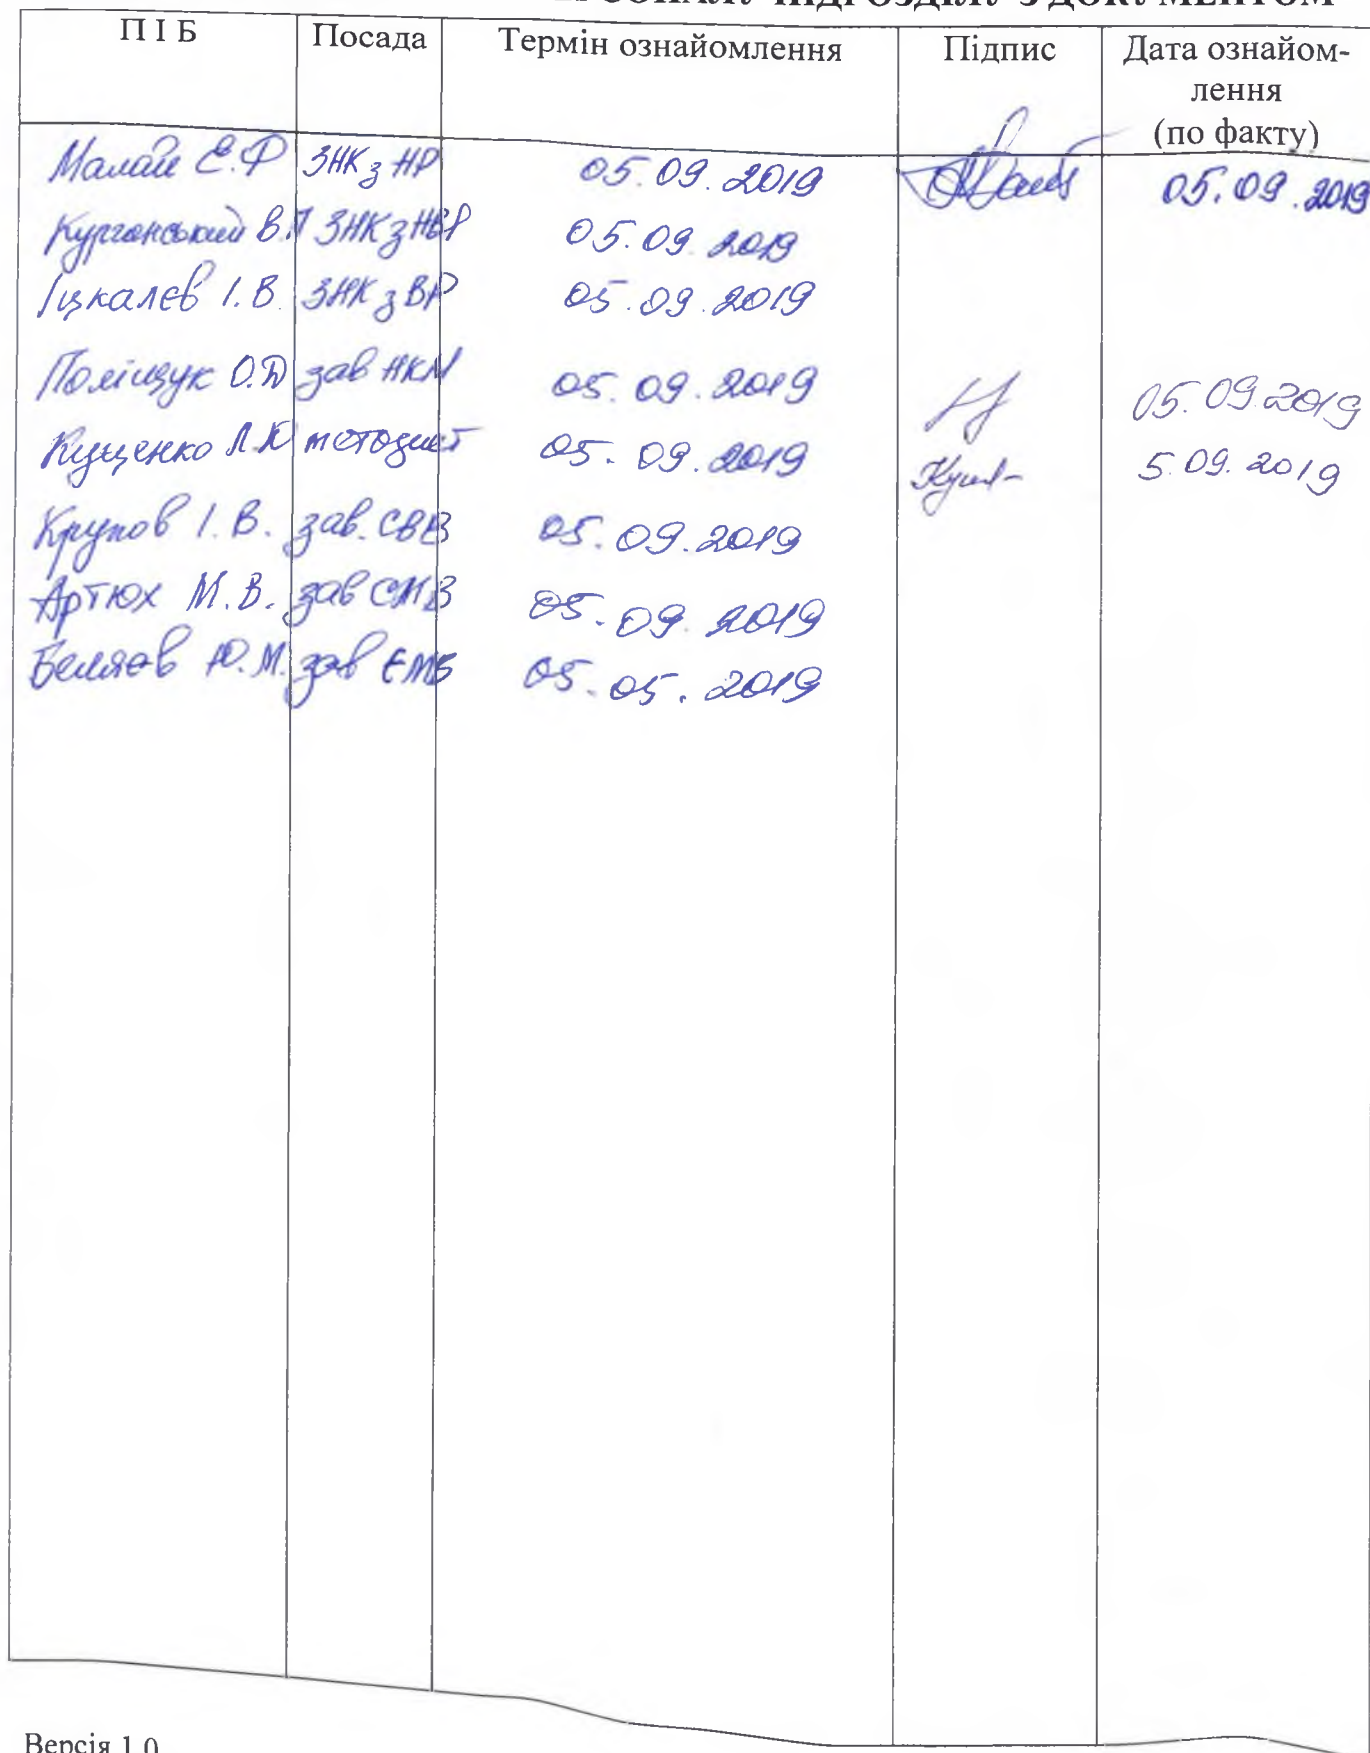 ПЕРСОНАЛУ ПІДРОЗДІЛУ З ДОКУМЕНТОМ
П І Б Посада Термін ознайомлення Підпис Дата ознайом-
лення
(по факту)
Малай Е.Ф ЗНК з НР 05.09.2019 05.09.2019
Курганський В.П ЗНК з НВР 05.09.2019
Іцкалєв І.В. ЗНК з ВР 05.09.2019
Поліщук О.Д зав НКМ 05.09.2019 05.09.2019
Кущенко Л.Ю методист 05.09.2019 5.09.2019
Крупов І.В. зав. СВВ 05.09.2019
Артюх М.В. зав СМВ 05.09.2019
Беляєв Ю.М. зав ЕМВ 05.05.2019
Версія 1.0